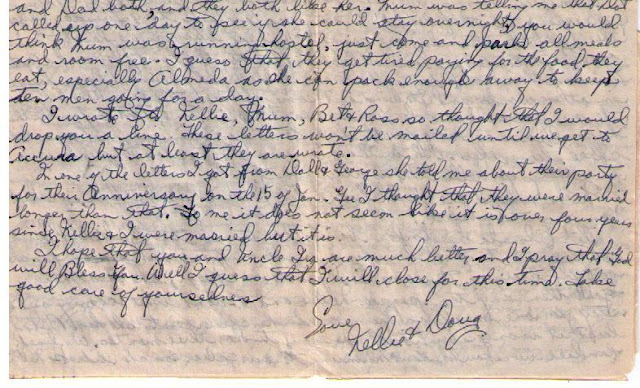 and Dad both, and they both like her. Mum was telling me that Dot
called up one day to see if she could stay overnight, you would
think Mum was running hostel, just come and park all meals
and room free. I guess that they get tired paying for the food they
eat, especially Almeda as she can pack enough away to keep
ten men going for a day.
I wrote to Nellie, Mum, Bett Ross so thought that I would
drop you a line. These letters won't be mailed until we get to
but at least they are wrote.
In one of the letters I got from Doll & George she told me about their party
for their Anniversary on the 15 of Jan. Gee I thought that they were married
longer than that. To me it does not seem like it is over four years
since Nellie & I were married but it is.
I hope that you and Uncle are much better and I pray that God
will Bless You. Well I guess that I will close for this time. Take
good care of yourselves
Love
Nellie & Doug